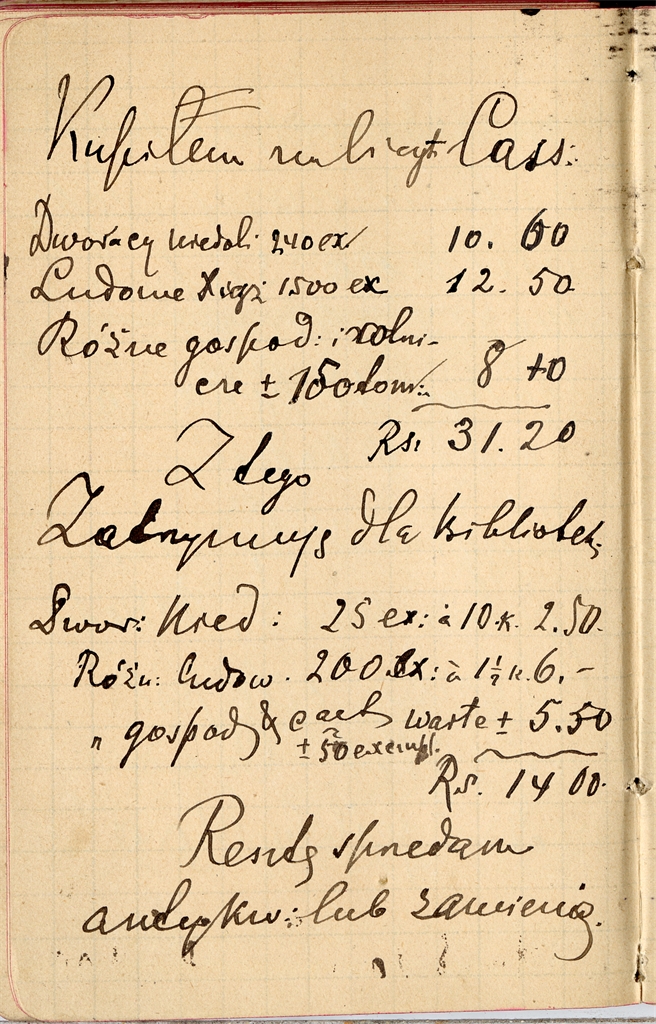 Kupiłem na licyt Cass:
Dworacy niedoli 240 ex 10. 60
Ludowe Xiąż 1500 ex 12. 50
Różne gospod: i rolni-
cze ± 150 tom: 8 10
Rs. 31. 20
Z tego
Zatrzymuję dla bibliotek:
Dwor: Nied: 25 ex: à 10 k. 2.50.
Różn: ludow. 200 ex: à 1½ k. 6.–
" gospod warte ± 5.50
± 50 exempl.
Rs. 14 00.
Resztę sprzedam
antykw: lub zamienię.